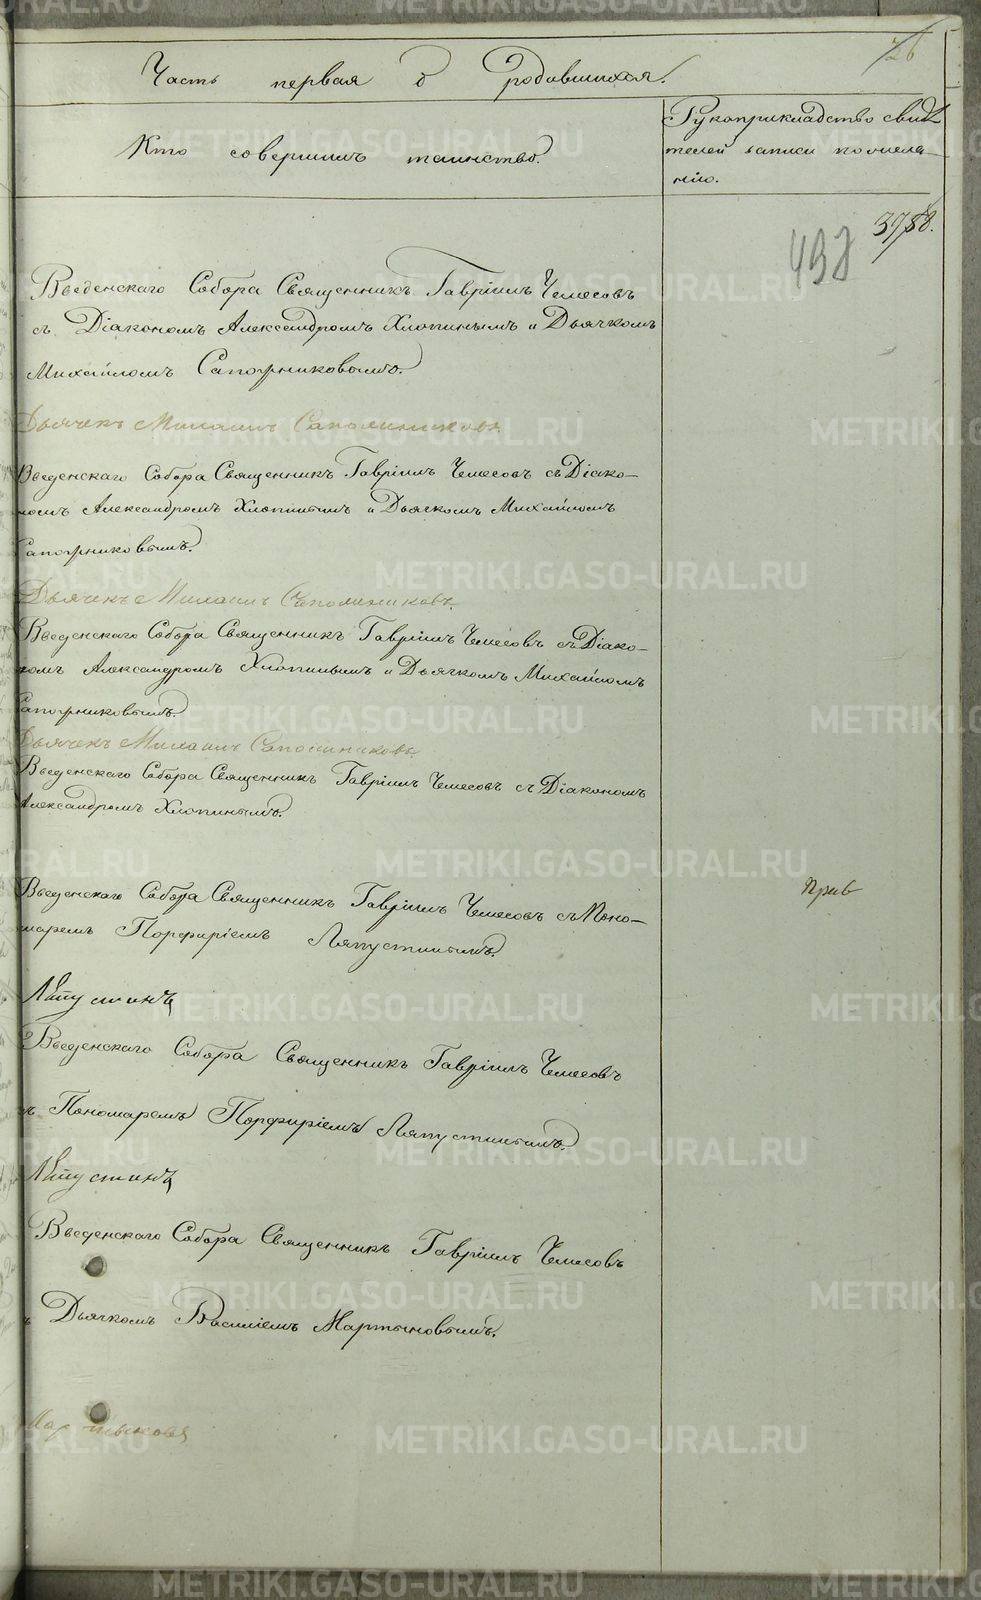 26
Часть первая о родившихся.
Кто совершилъ таинство.
Рукоприкладство свидѣ-
телей записи по жела-
нію.
498
Введенскаго Собора Священникъ Гавріилъ Чемесовъ
съ Діакономъ Александромъ Хлопинымъ и Дьячкомъ
Михайломъ Сапожниковымъ.
Дьячекъ Михаилъ Сапожниковъ
Введенскаго Собора Священникъ Гавріилъ Чемесовъ съ Діако-
номъ Александромъ Хлопинымъ и Дьячкомъ Михайломъ
Сапожниковымъ.
Дьячекъ Михаилъ Сапожниковъ
Введенскаго Собора Священникъ Гавріилъ Чемесовъ съ Діако-
номъ Александромъ Хлопинымъ и Дьячкомъ Михайломъ
Сапожниковымъ.
Дьячекъ Михаилъ Сапожниковъ
Введенскаго Собора Священникъ Гавріилъ Чемесовъ съ Діакономъ
Александромъ Хлопинымъ.
Введенскаго Собора Священникъ Гавріилъ Чемесовъ съ Поно-
маремъ Порфиріемъ Ляпустинымъ.
Ляпустинъ
Введенскаго Собора Священникъ Гавріилъ Чемесовъ
съ Пономаремъ Порфиріемъ Ляпустинымъ.
Ляпустинъ
Введенскаго Собора Священникъ Гавріилъ Чемесовъ
съ Дьячкомъ Василіемъ Мартыновымъ.
Мартыновъ
METRIKI.GASO-URAL.RU